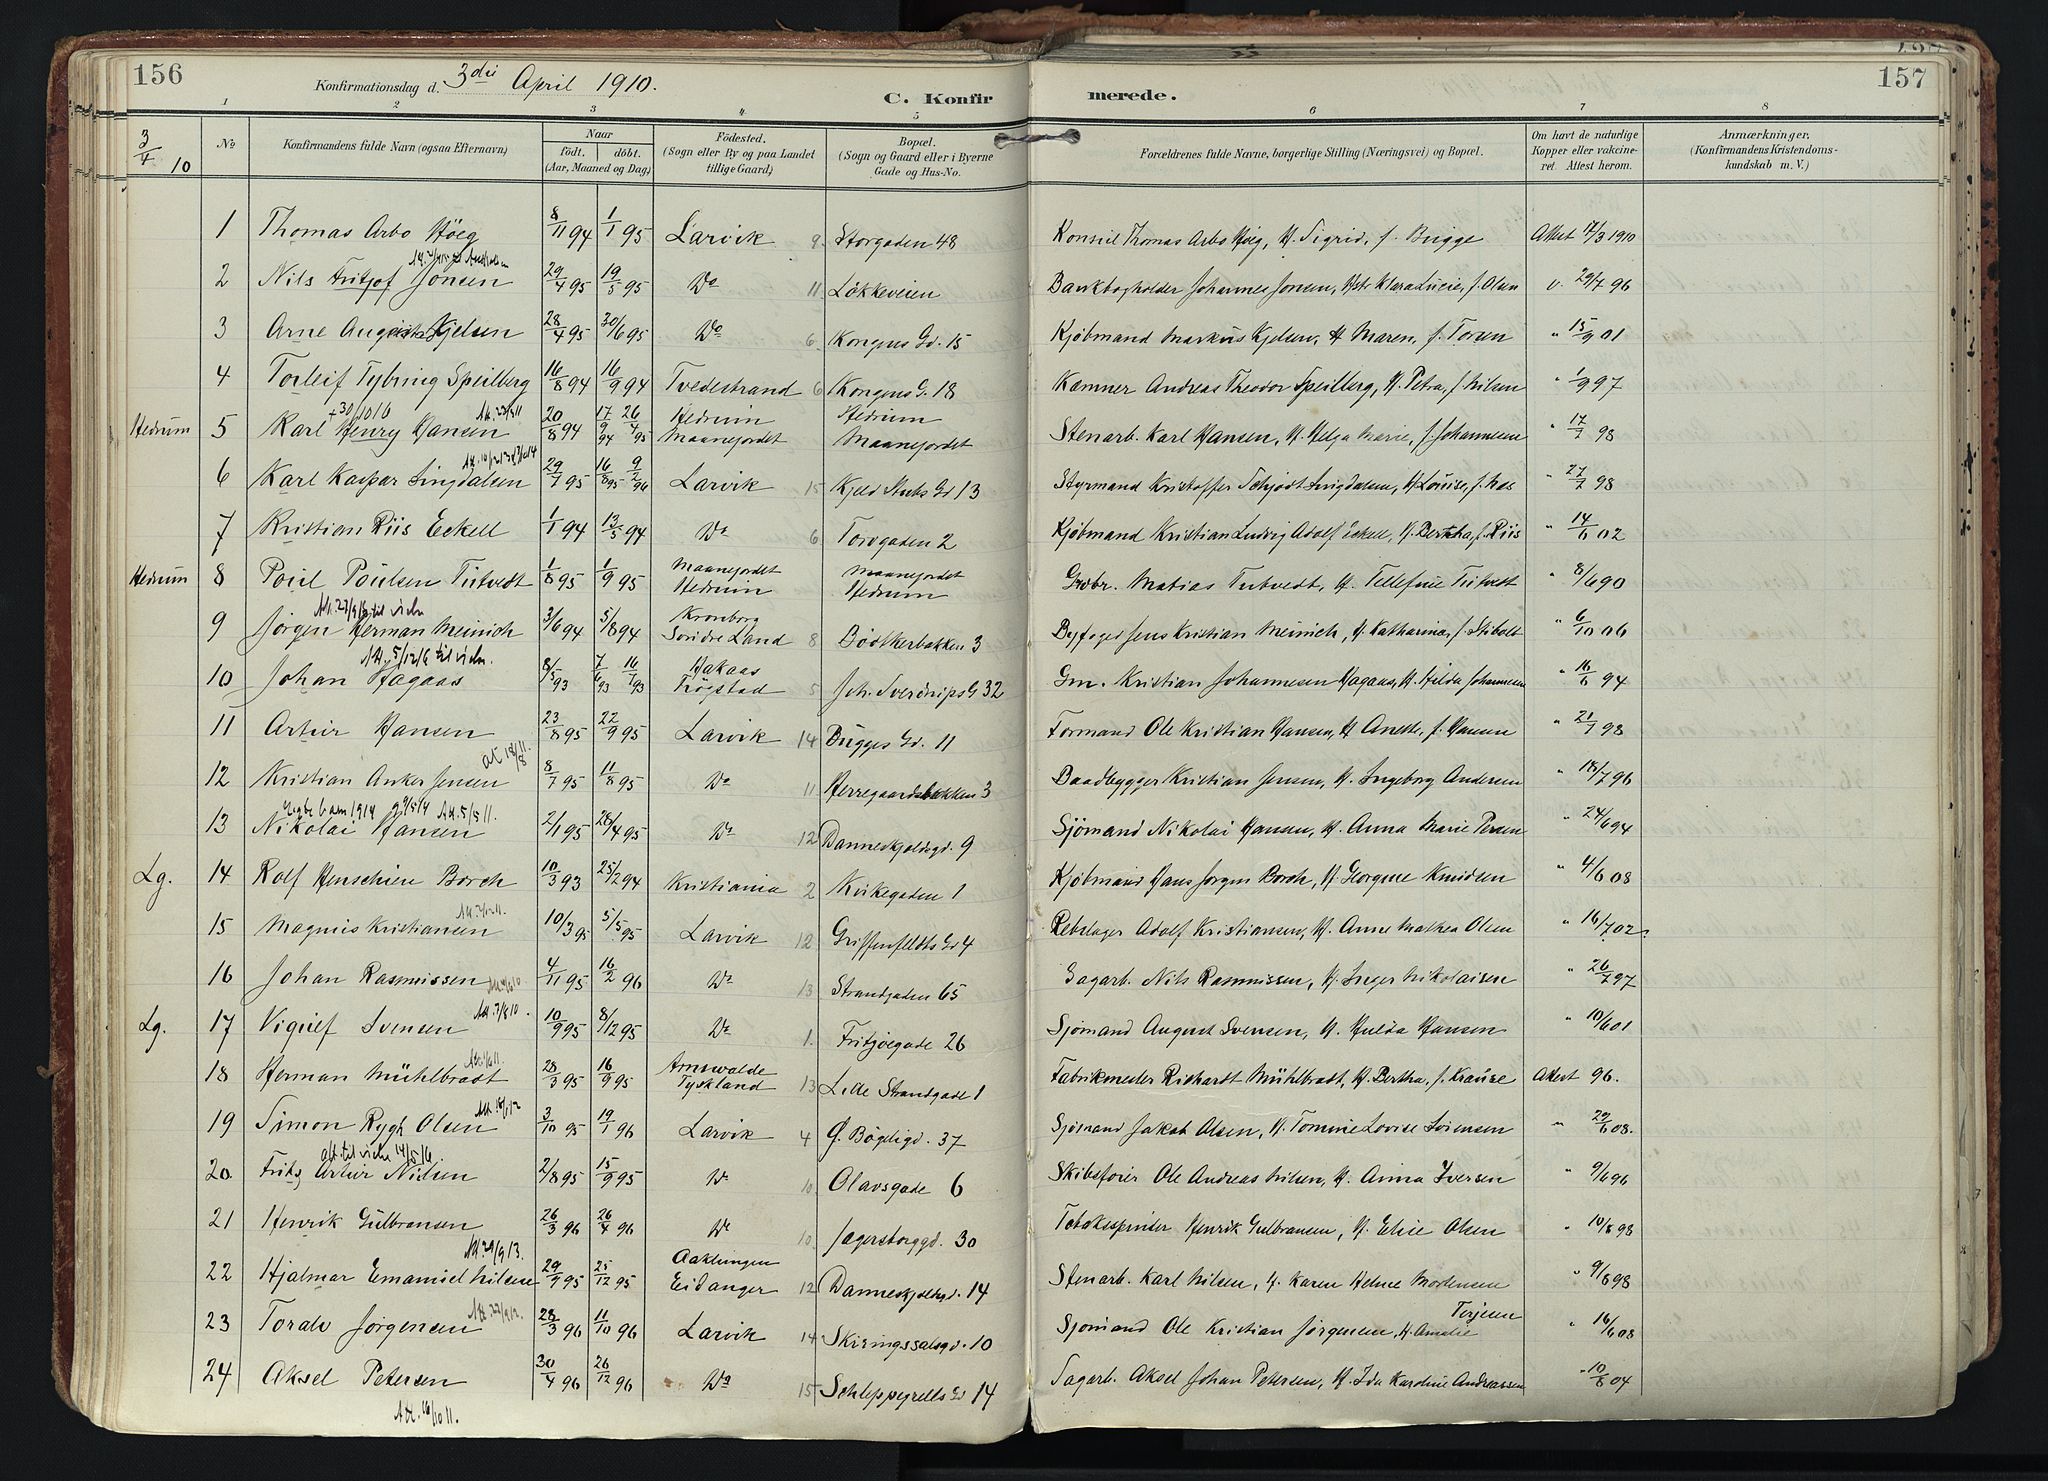 156
Konfirmationsdag d. 3die April 1910.
C. Konfir
merede.
157
1 2 3 4 5 6 7 8
3/4 10
No
Konfirmandens fulde Navn (ogsaa Efternavn)
Naar
födt. döbt.
(Aar, Maaned og Dag)
Födested.
(Sogn eller By og paa Landet
tillige Gaard)
Bopæl.
(Sogn og Gaard eller i Byerne
Gade og Hus-No.
Forældrenes fulde Navne, borgerlige Stilling (Næringsvei) og Bopæl.
Om havt de naturlige
Kopper eller vakcine-
ret. Attest herom.
Anmærkninger.
(Konfirmandens Kristendoms-
kundskab m. V.)
1 Thomas Arbo Höeg 8/11 94 1/1 95 Larvik 9. Storgaden 48 Konsul Thomas Arbo Höeg, H. Sigrid, f. Bugge Attest 17/3 1910
2 Nils Fritjof Jonsen 29/4 95 19/5 95 Do 11 Løkkeveien Bankbogholder Johannes Jonsen, Hst. Klara Lucie, f. Olsen v. 29/7 96
3 Arne August Kjelsen 28/4 95 30/6 95 Do 6. Kongens Gd. 15 Kjøbmand Markus Kjelsen, H Maren, f. Torsen " 15/9 01
4 Torleif Tybring Speilberg 16/8 94 16/9 94 Tvedestrand 6 Kongens G. 18 Kæmner Andreas Theodor Speilberg, H. Petra, f. Nilsen " 1/9 97
+ 30/10 16 Att. 23/5 11
Hedrum 5 Karl Henry Hansen 20/8 94 17/9 94 26/4 95 Hedrum Maanejordet Hedrum Maanejordet Stenarb. Karl Hansen, H. Helga Marie, f. Johannesen " 17/7 98
6 Karl Kaspar Lingdalsen 29/7 95 16/8 95 9/2 96 Larvik 15 Kjeld Stubs Gd 13 Styrmand Kristoffer Schjödt Lingdalsen, H. Louise, f. Naes " 27/7 98
7 Kristian Riis Eckell 1/1 94 13/5 94 Do 6 Torvgaden 2 Kjøbmand Kristian Ludvig Adolf Eckell, H. Bertha, f. Riis " 14/6 02
Hedrum 8 Poul Poulsen Tutvedt 1/8 95 1/9 95 Maanejordet Hedrum Maanejordet Hedrum Grdbr. Matias Tutvedt, H. Tellefine Tutvedt " 8/6 90
Att. 27/9 18 til vielse
9 Jörgen Herman Meinich 3/6 94 5/8 94 Kronborg Söndre Land 8 Bödtkerbakken 3 Byfoged Jens Kristian Meinich, H. Katharina, f. Stibolt " 6/10 06
Att. 5/12 16 til vielse.
10 Johan Hagaas 8/5 93 7/6 93 16/7 93 Hakaas Trögstad 5 Joh. Sverdrups G 32 Gm. Kristian Johannesen Hagaas, H. Hilda Johannesen " 16/6 94
11 Artur Hansen 23/8 95 22/9 95 Larvik 14 Bugges Gd. 11 Formand Ole Kristian Hansen, H Anette, f. Hansen " 21/7 98
at 18/8 11.
12 Kristian Anker Jensen 8/7 95 11/8 95 Do 11 Herregaardsbakken 3 Baadbygger Kristian Jensen, H. Ingeborg Andersen " 18/7 96
Att. 5/5 11.
13 Nikolai Hansen 2/1 95 28/4 95 Do 12 Danneskjoldsgd. 9 Sjömand Nikolai Hansen, H. Anna Marie Persen " 24/6 94
Lg. 14 Rolf Henschien Borch 10/3 93 25/12 94 Kristiania 2 Kirkegaden 1 Kjøbmand Hans Jörgen Borch, H. Georgine Knudsen " 4/6 08
15 Magnus Kristiansen 10/3 95 5/5 95 Larvik 12 Griffenfeldts Gd 4 Rebslager Adolf Kristiansen, H. Anne Mathea Olsen " 16/7 02.
16 Johan Rasmussen 4/11 95 16/2 96 Do 13 Strandgaden 65 Sagarb. Nils Rasmussen, H. Inger Nikolaisen " 26/7 97
Att. 3/8 10.
Lg. 17 Vigulf Svensen 10/9 95 8/12 95 Do 1. Fritjoegade 26 Sjømand August Svensen, H. Hulda Hansen " 10/6 01
18 Herman Mühlbradt 28/3 95 16/9 95 Arnswalde Tyskland 13 Lille Strandgade 1 Fabrikmester Richardt Mühlbradt, H. Bertha, f. Krause Attest 96.
19 Simon Rygh Olsen 3/10 95 19/1 96 Larvik 4 Ø. Bögeligd. 37 Sjömand Jakob Olsen, H. Tomine Lovise Sörensen " 29/6 08.
att. til vielse 14/5 16.
20 Fritz Artur Nilsen 2/8 95 15/9 95 Do 10. Olavsgade 6 Skibsfører Ole Andreas Nilsen, H. Anna Iversen " 9/6 96
21 Henrik Gulbransen 26/3 96 26/4 96 Do 10. Jagersborggd. 30 Tobaksspinder Henrik Gulbransen, H. Elise Olsen " 10/8 98
Att. 29/9 13.
22 Hjalmar Emanuel Nilsen 29/9 95 25/12 95 Aaklungen Eidanger 12 Danneskjoldsgd. 14 Stenarb. Karl Nilsen, H. Karen Helene Mortensen " 9/8 98
Att. 27/9 12.
23 Toralv Jörgensen 28/3 96 11/10 96 Larvik 14 Skiringssalsgd. 10 Sjömand Ole Kristian Jörgensen, H. Amalie Terjesen " 16/6 08
24 Aksel Petersen 30/4 96 26/12 96 Do 15 Schleppegrells Gd 14 Sagarb. Aksel Johan Petersen, H. Ida Karoline Andreassen " 10/8 04
Att. 16/10 11.